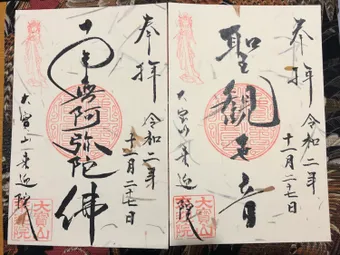 奉拝
令和二年
月二十七日
聖観世音
大寳山来迎院
奉拝
令和二年
月二十七日
南無阿弥陀佛
大寳山来迎院